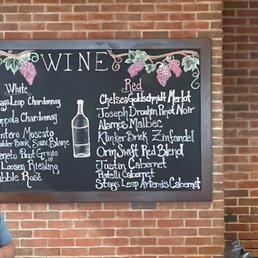 WINE
White
Leap Chardonnay
Coppola Chardonnay
Moscato
Sauv Blanc
Veneto Pinot Grigio
Loosen Riesling
Rosé
Red
Chelsea Goldschmidt Merlot
Joseph Drouhin Pinot Noir
Alamos Malbec
Klinker Brick Zinfandel
Orin Swift Red Blend
Justin Cabernet
Cabernet
Stags Leap Artemis Cabernet